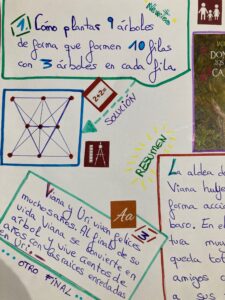 1. Cómo plantar 9 árboles
de forma que formen 10 filas
con 3 árboles en cada fila.
2+2=
SOLUCIÓN
RESUMEN
DON
CA
La aldea d
Viana
forma acci
baro. En e
tura muy
queda tot
amigos
sus
Aa
Viana y Uri viven felices
muchos años. Al final de su
vida Viana se convierte en
árbol y vive cientos de
años con las raíces enredadas
en Uri
[3]
OTRO FINAL